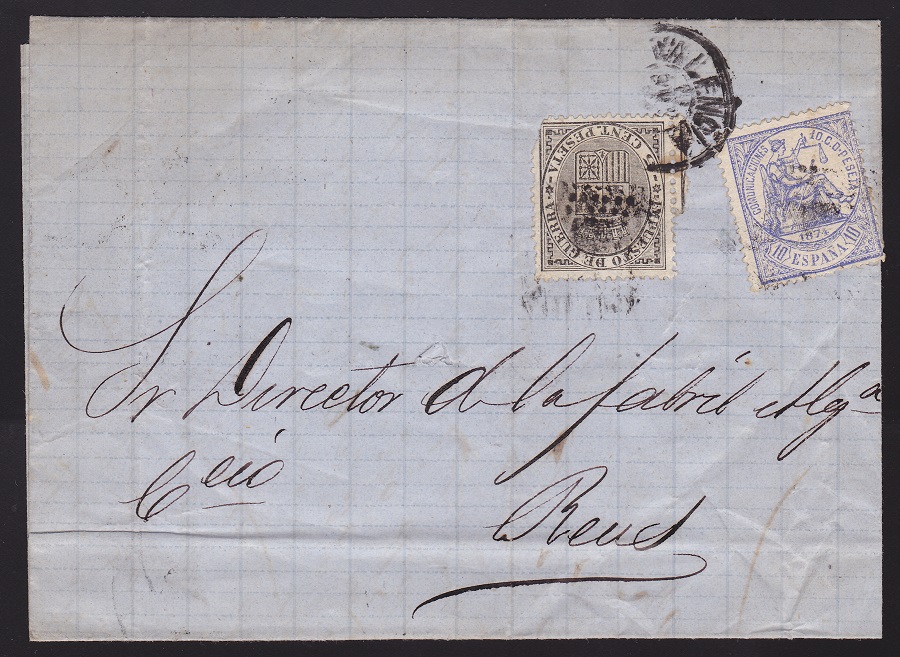 VALENCIA
5 CENT. PESETA
IMPUESTO DE GUERRA
COMUNICACIONES 10 C. DE PESETA
1874
10 ESPAÑA 10
Sr Director de la fabril Alg.ª
Reus